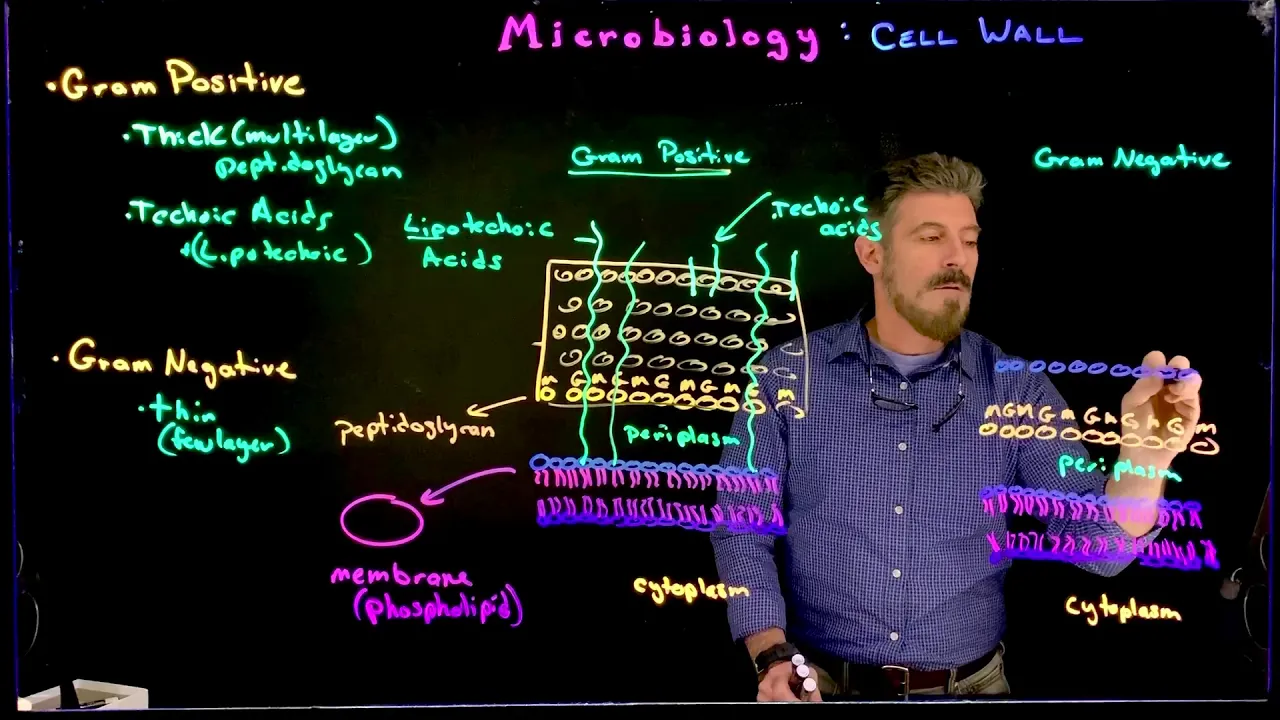 Microbiology: CELL WALL
• Gram Positive
• Thick (multilayer)
peptidoglycan
• Techoic Acids
+(Lipotechoic)
• Gram Negative
• thin
(few layer)
Gram Positive
Lipotechoic
Acids
Techoic
acids
M G M G M G M G M G M
peptidoglycan
periplasm
membrane
(phospholipid)
cytoplasm
Gram Negative
M G M G M G M G M G M
periplasm
cytoplasm